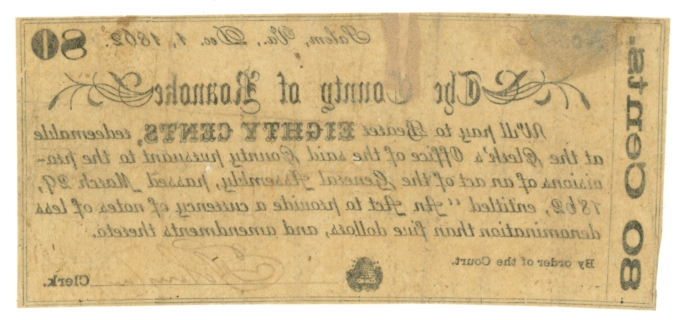 80 Salem, Va., Dec. 1, 1862.
The County of Roanoke
Will pay to Bearer EIGHTY CENTS, redeemable
at the Clerk's Office of the said County pursuant to the pro-
visions of an act of the General Assembly, passed March 29,
1862, entitled "An Act to provide a currency of notes of less
denomination than five dollars, and amendments thereto.
By order of the Court.
Clerk.
80 Cents.